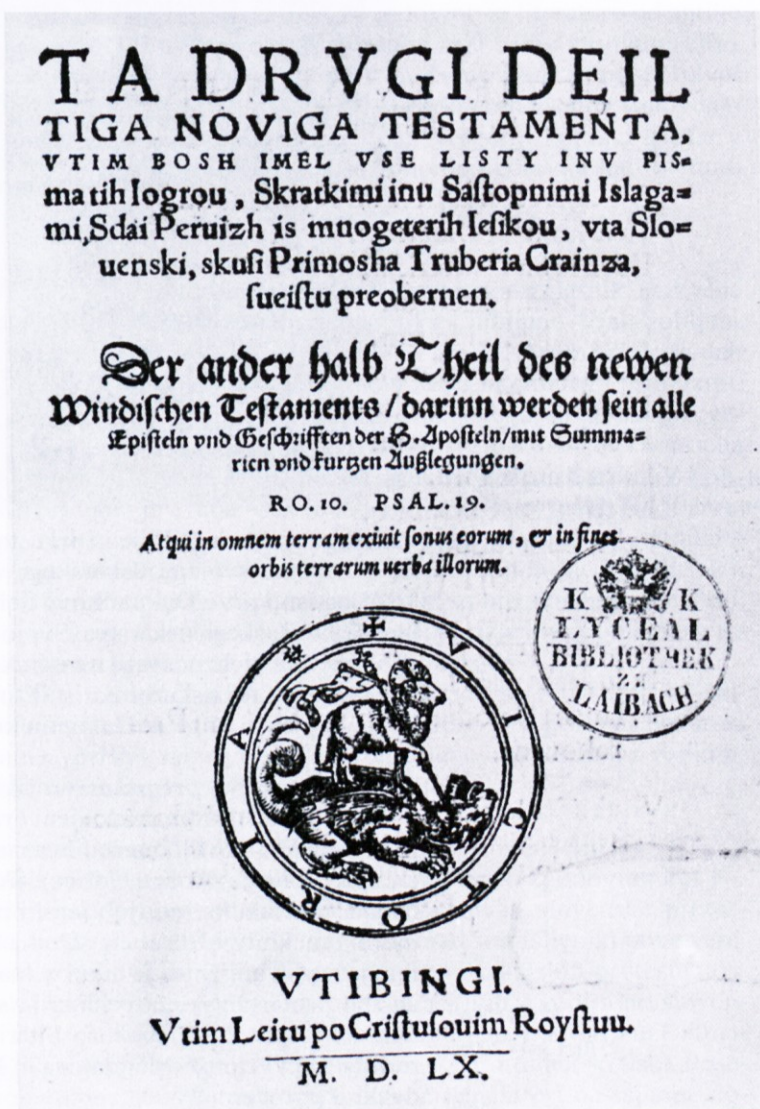 TA DRVGI DEIL
TIGA NOVIGA TESTAMENTA,
VTIM BOSH IMEL VSE LISTY INV PIS=
ma tih Iogrou, Skratkimi inu Saſtopnimi Islaga=
mi, Sdai Peruizh is mnogeterih Ieſikou, vta Slo=
uenski, skuſi Primosha Truberia Crainza,
ſueiſtu preobernen.
Der ander halb Theil des newen
Windiſchen Teſtaments / darinn werden ſein alle
Epiſteln vnd Geſchrifften der H. Apoſteln / mit Summa=
rien vnd kurtzen Außlegungen.
RO. 10. PSAL. 19.
Atqui in omnem terram exiuit ſonus eorum, & in fines
orbis terrarum uerba illorum.
K K
LYCEAL
BIBLIOTHEK
ZU
LAIBACH
VICTORIA
VTIBINGI.
Vtim Leitu po Criſtuſouim Royſtuu.
M. D. LX.